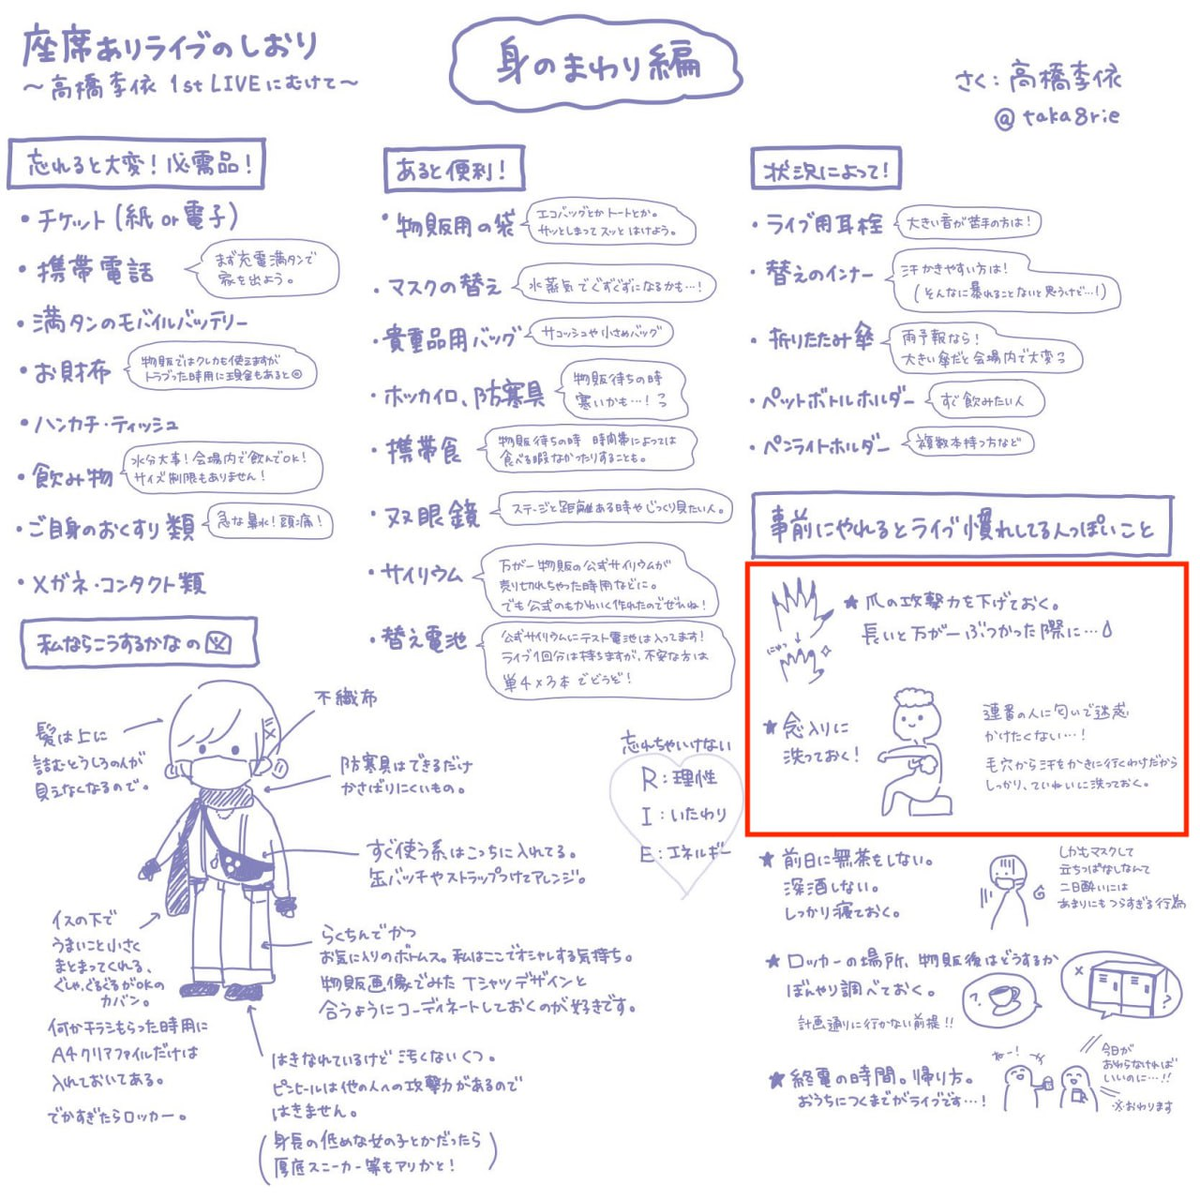 座席ありライブのしおり
～高橋李依 1st LIVEにむけて～
身のまわり編
さく：高橋李依
@taka8rie
忘れると大変！必需品！
・チケット(紙or電子)
・携帯電話
まず充電満タンで
家を出よう。
・満タンのモバイルバッテリー
・お財布
物販ではクレカも使えますが
トラブった時用に現金もあると◎
・ハンカチ・ティッシュ
・飲み物
水分大事！会場内で飲んでOK！
サイズ制限もありません！
・ご自身のおくすり類
急な鼻水！頭痛！
・メガネ・コンタクト類
あると便利！
・物販用の袋
エコバッグとかトートとか。
サッとしまってスッとはけよう。
・マスクの替え
水蒸気でぐずぐずになるかも…！
・貴重品用バッグ
サコッシュや小さめバッグ
・ホッカイロ、防寒具
物販待ちの時
寒いかも…！
・携帯食
物販待ちの時 時間帯によっては
食べる暇なかったりすることも。
・双眼鏡
ステージと距離ある時やじっくり見たい人。
・サイリウム
万が一物販の公式サイリウムが
売り切れちゃった時用などに。
でも公式のもかわいく作れたのでぜひね！
・替え電池
公式サイリウムにテスト電池は入ってます！
ライブ1回分は持ちますが、不安な方は
単4×3本でどうぞ！
状況によって！
・ライブ用耳栓
大きい音が苦手の方は！
・替えのインナー
汗かきやすい方は！
(そんなに暴れることないと思うけど…！)
・折りたたみ傘
雨予報なら！
大きい傘だと会場内で大変っ
・ペットボトルホルダー
すぐ飲みたい人
・ペンライトホルダー
複数本持つ方など
事前にやれるとライブ慣れしてる人っぽいこと
★爪の攻撃力を下げておく。
長いと万が一ぶつかった際に…
★念入りに
洗っておく！
連番の人に匂いで迷惑
かけたくない…！
毛穴から汗をかきに行くわけだから
しっかり、ていねいに洗っておく。
★前日に無茶をしない。
深酒しない。
しっかり寝ておく。
しかもマスクして
立ちっぱなしなんて
二日酔いには
あまりにもつらすぎる行為
★ロッカーの場所、物販後はどうするか
ぼんやり調べておく。
計画通りに行かない前提!!
★終電の時間。帰り方。
おうちにつくまでがライブです…！
ねー！
今日が
おわらなければ
いいのに…!!
※おわります
私ならこうするかなの図
不織布
髪は上に
詰むとうしろの人が
見えなくなるので。
防寒具はできるだけ
かさばりにくいもの。
すぐ使う系はこっちに入れてる。
缶バッチやストラップつけてアレンジ。
イスの下で
うまいこと小さく
まとまってくれる、
ぐしゃ、ぐるぐるがOKの
カバン。
何かチラシもらった時用に
A4クリアファイルだけは
入れておいてある。
でかすぎたらロッカー。
らくちんでかつ
お気に入りのボトムス。私はここでオシャレする気持ち。
物販画像でみたTシャツデザインと
合うようにコーディネートしておくのが好きです。
はきなれているけど汚くないくつ。
ピンヒールは他の人への攻撃力があるので
はきません。
(身長の低めな女の子とかだったら
厚底スニーカー等もアリかと！)
忘れちゃいけない
R：理性
I：いたわり
E：エネルギー